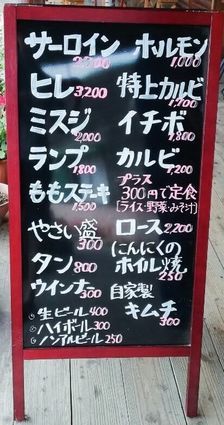 サーロイン
2,300
ホルモン
1,000
ヒレ 3200
特上カルビ
1,700
ミスジ
2,000
イチボ
1,800
ランプ
1,800
カルビ
1,200
ももステーキ
1,500
プラス
300円で定食
[ライス・野菜・みそ汁]
やさい盛
300
ロース 2,200
タン 800
にんにくの
ホイル焼
250
ウインナー 300
自家製
キムチ
300
生ビール 400
ハイボール 300
ノンアルビール 250